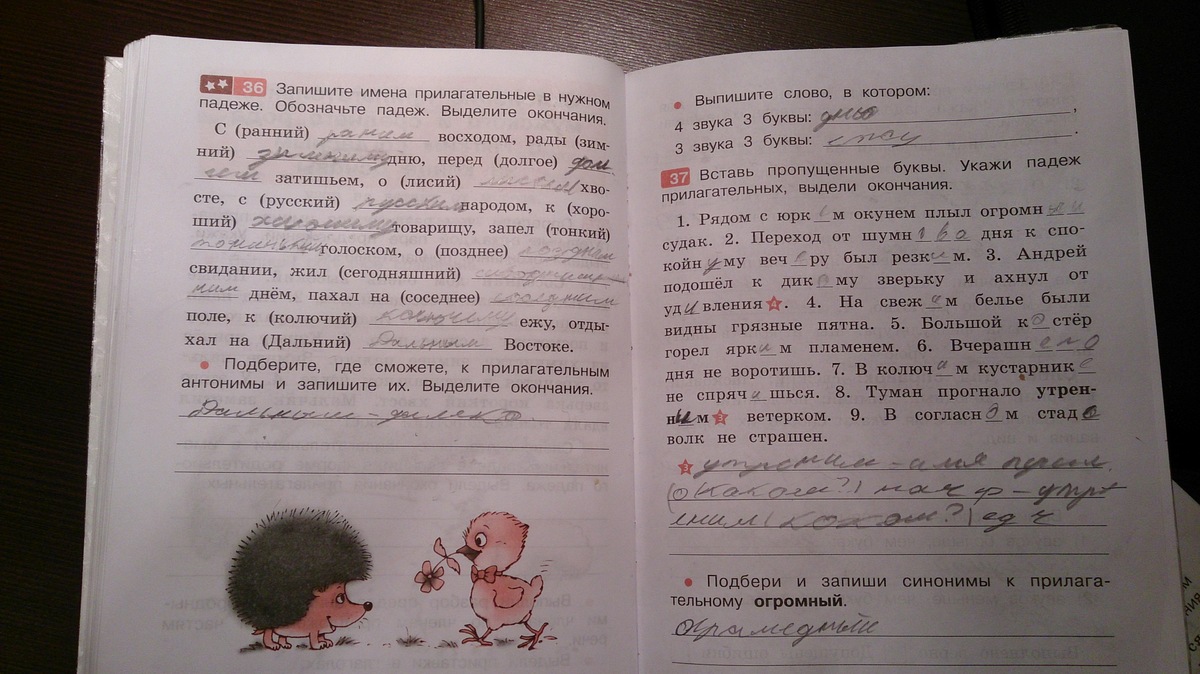 36 Запишите имена прилагательные в нужном
падеже. Обозначьте падеж. Выделите окончания.
С (ранний) раним восходом, рады (зим-
ний) зимнему дню, перед (долгое) дол
гем затишьем, о (лисий) хво-
сте, с (русский) русским народом, к (хоро-
ший) хорошему товарищу, запел (тонкий)
тоненьким голоском, о (позднее) позднем
свидании, жил (сегодняшний) сегодняшне-
ним днём, пахал на (соседнее) соседним
поле, к (колючий) колючему ежу, отды-
хал на (Дальний) Дальным Востоке.
• Подберите, где сможете, к прилагательным
антонимы и запишите их. Выделите окончания.
Дальным - далеко
• Выпишите слово, в котором:
4 звука 3 буквы: ,
3 звука 3 буквы: .
37 Вставь пропущенные буквы. Укажи падеж
прилагательных, выдели окончания.
1. Рядом с юрк м окунем плыл огромн
судак. 2. Переход от шумн дня к спо-
койн у му веч е ру был резк и м. 3. Андрей
подошёл к дик о му зверьку и ахнул от
уд и вления 4. 4. На свеж и м белье были
видны грязные пятна. 5. Большой к о стёр
горел ярк и м пламенем. 6. Вчерашн его
дня не воротишь. 7. В колюч и м кустарник е
не спряч и шься. 8. Туман прогнало утрен-
н м 3 ветерком. 9. В согласн м стад о
волк не страшен.
3 утреним - имя прил.
(Каком?) нач ф - утре
еним (каком?) ед ч
• Подбери и запиши синонимы к прилага-
тельному огромный.
Грамедный